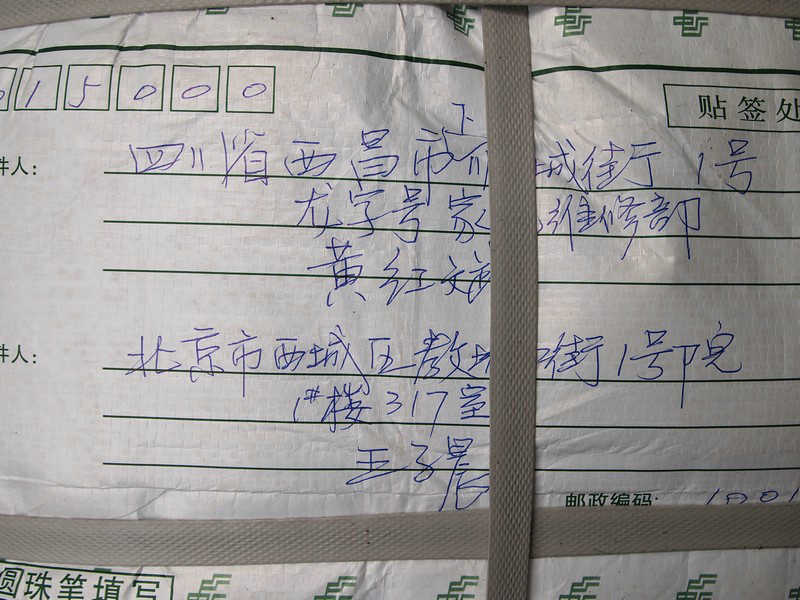 15000
贴签处
下
件人: 四川省西昌市 城街厅1号
龙字号家 维修部
黄红斌
件人: 北京市西城区教 街1号院
1#楼317室
王子晨
邮政编码: 1001
圆珠笔填写